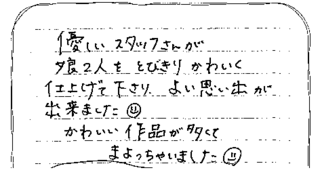 優しいスタッフさんが
娘2人をとびきりかわいく
仕上げて下さり よい思い出が
出来ました☺
かわいい作品が多くて
まよっちゃいました☺